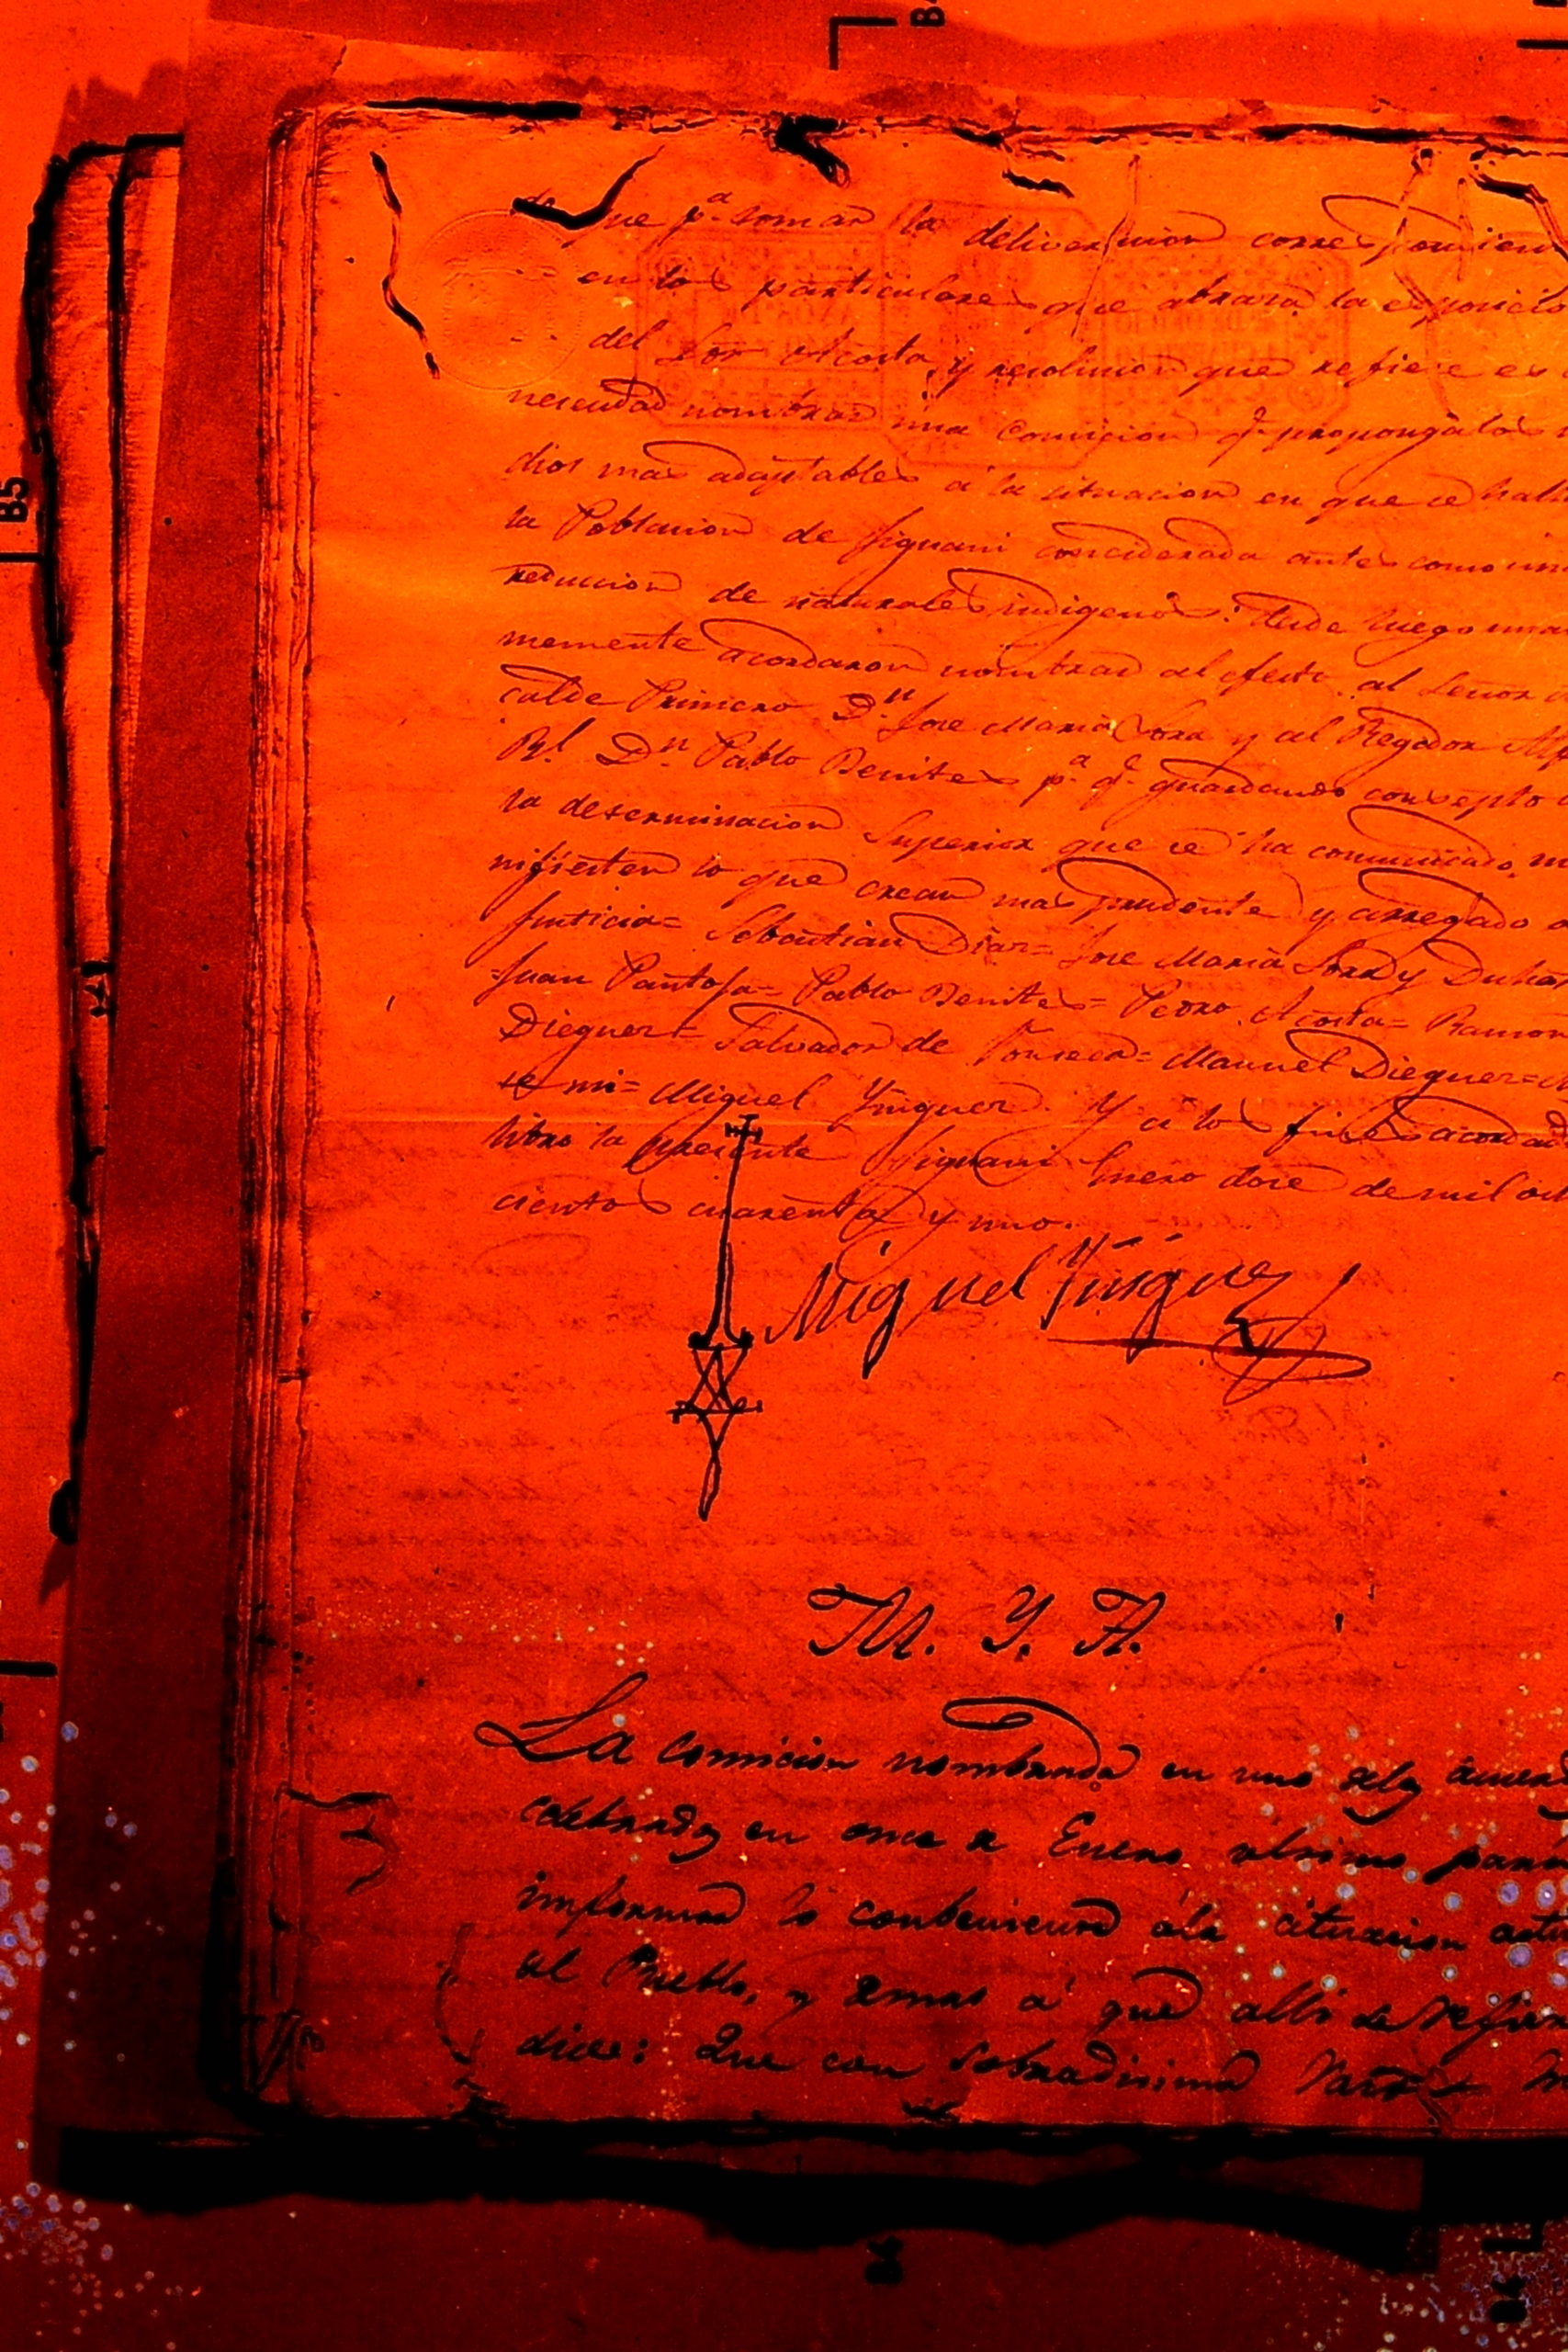 que p.ª tomar la deliveracion correspondien
en los particulares que abraza la esposicio
del Sor Acosta, y resolucion que refiere es
necesidad nombrar una Comicion q.e proponga los
dios mas adaptables á la situacion en que se hall
la Poblacion de Jiguani conciderada antes como un
reduccion de naturales indigenos: desde luego una
memente acordaron nombrar al efecto al Señor
calde Primero D.n Jose Maria Sora y al Regidor
Rl. Dn. Pablo Benites p.ª q.e guardando consepto
la determinacion Superior que se ha comunicado, m
nifiesten lo que crean mas prudente y arregado
Justicia= Sebastian Diaz= Jose Maria Sora y
Juan Pantoja= Pablo Benites= Pedro Acosta= Ramon
Dieguez= Salvador de Fonseca= Manuel Dieguez=
te mi= Miguel Yñiguez. Y a los fines acordad
libro la presente Jiguani Enero doce de mil och
cientos cuarenta y uno.
Miguel Yñiguez
M. Y. A.
La comicion nombrada en uno de los acuerd
celebrados en once de Enero ultimo para
informar lo conbeniente á la cituacion actu
al Pueblo, y demas á que alli se refier
dice: Que con sobradisima
B5
B4